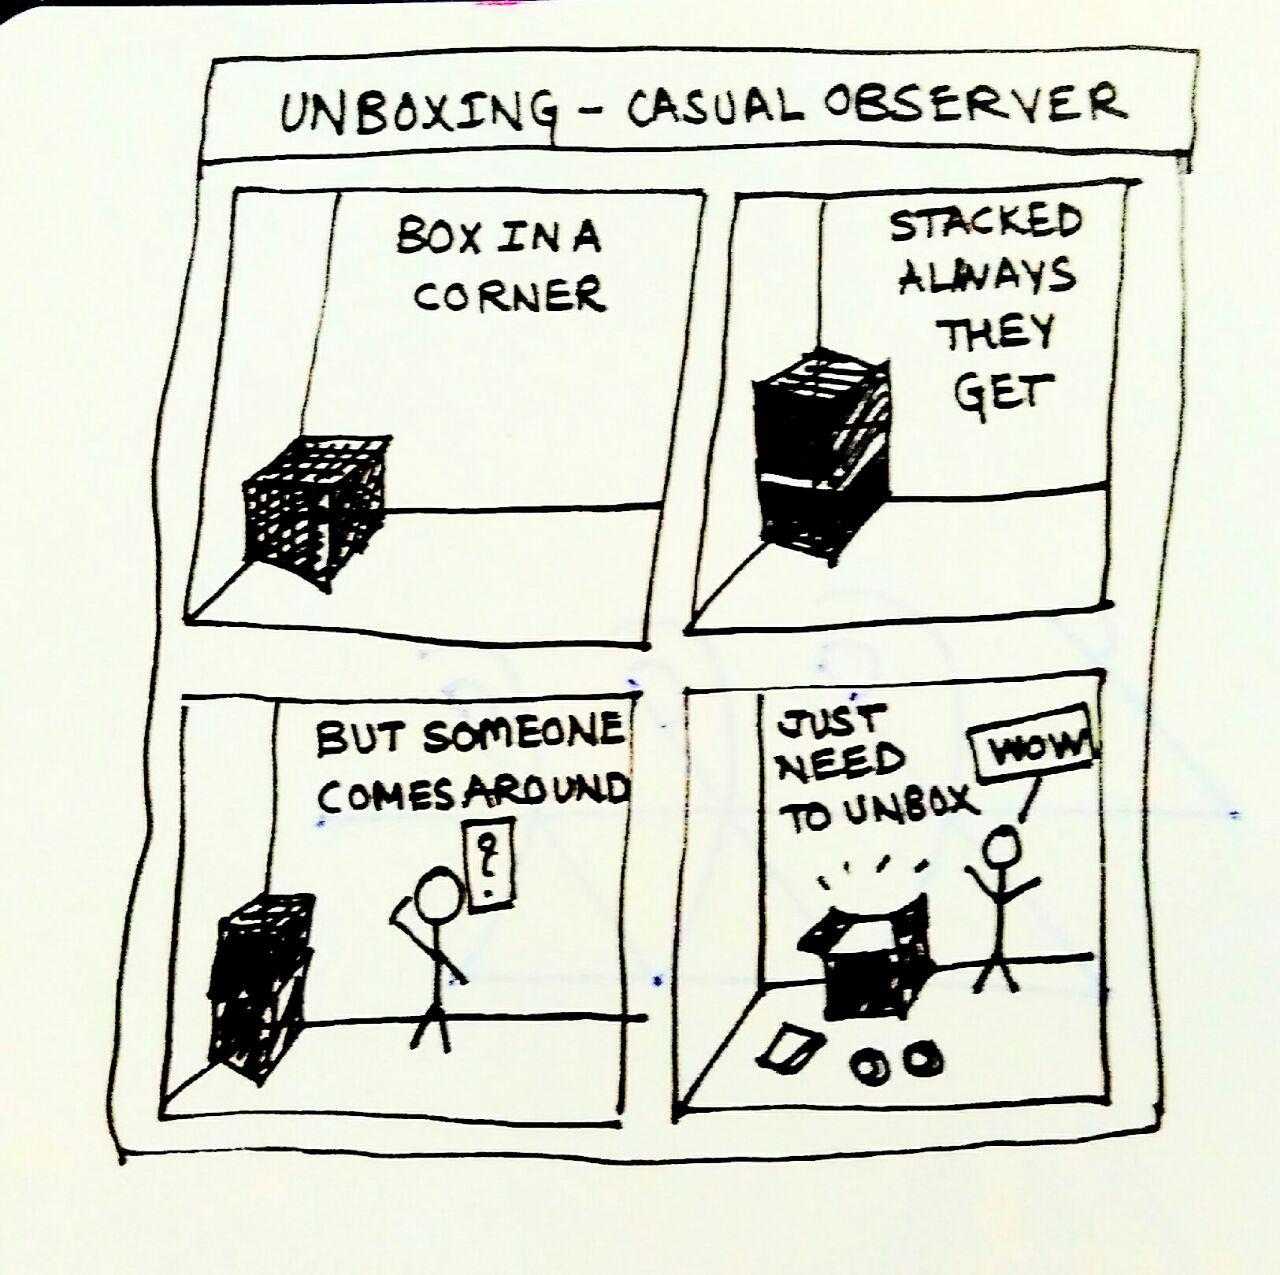 UNBOXING - CASUAL OBSERVER
BOX IN A
CORNER
STACKED
ALWAYS
THEY
GET
BUT SOMEONE
COMES AROUND
?
JUST
NEED
TO UNBOX
WOW